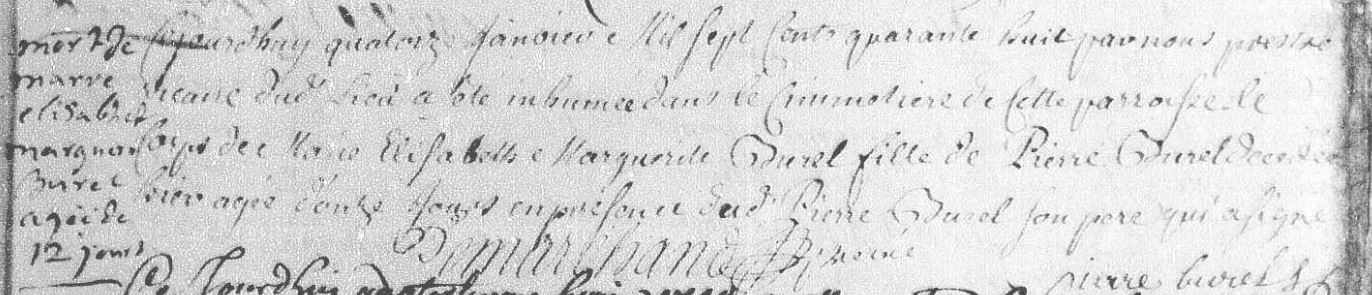 mort de
marie
elisabet
Burel
agée de
12 jours
Cejourd'huy quatorze Janvier Mil sept Cents quarante huit par nous prestre
vicaire dud. lieu a été inhumée dans le Cimmetiere de Cette parroisse le
Corps de Marie Elisabeth Marguerite Burel fille de Pierre Burel decedée
hier agée d'onze Jours en presence dud. Pierre Burel son pere qui a signé
Demarchand vicaire
pierre burel
Ce Jourd'huy